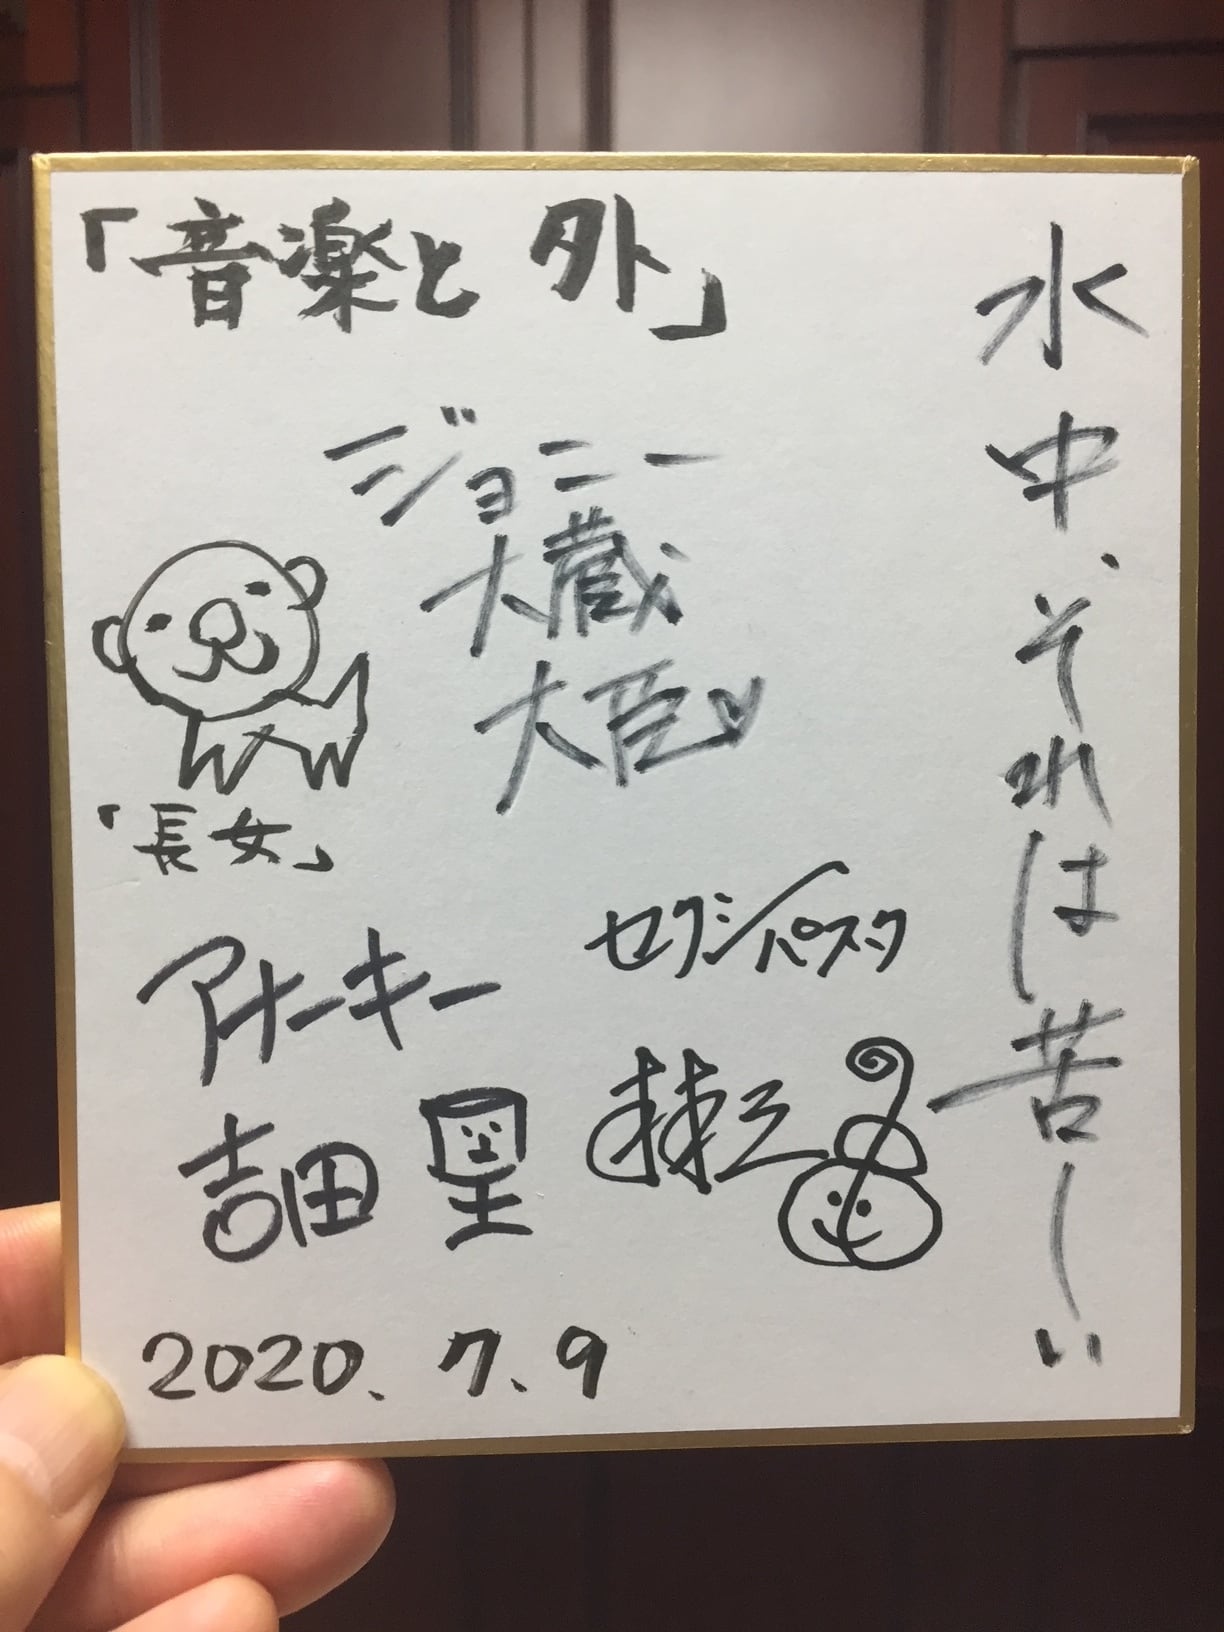 水中、それは苦しい
「音楽と外」
ジョニー
大蔵
大臣
「長女」
セクシーパスタ
林三
アナーキー
吉田
2020.7.9